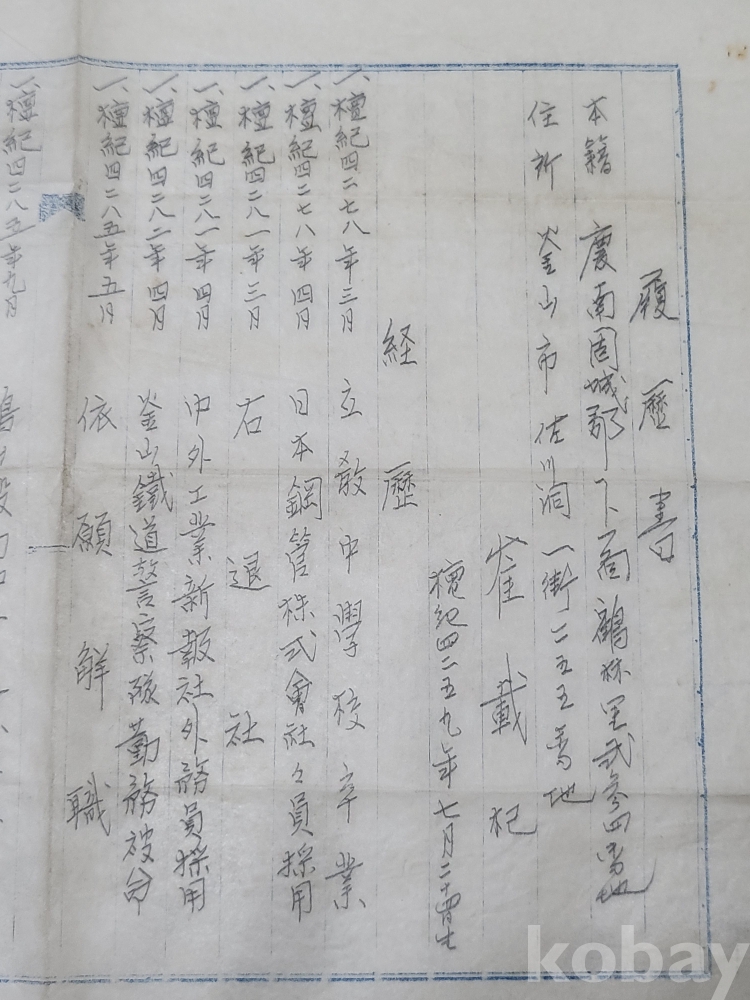 履歷書
本籍 慶南固城郡下面鶴林里貳參四番地
住所 釜山市佐川洞一街二五五番地
崔載杞
檀紀四二五九年七月二十四日生
経歷
一、檀紀四二七八年三月 立敎中學校卒業
一、檀紀四二七八年四月 日本鋼管株式會社々員採用
一、檀紀四二八一年三月 右退社
一、檀紀四二八一年四月 中外工業新報社外務員採用
一、檀紀四二八二年四月 釜山鐵道警察隊勤務被命
一、檀紀四二八五年五月 依願解職
一、檀紀四二八五年九月
kobay